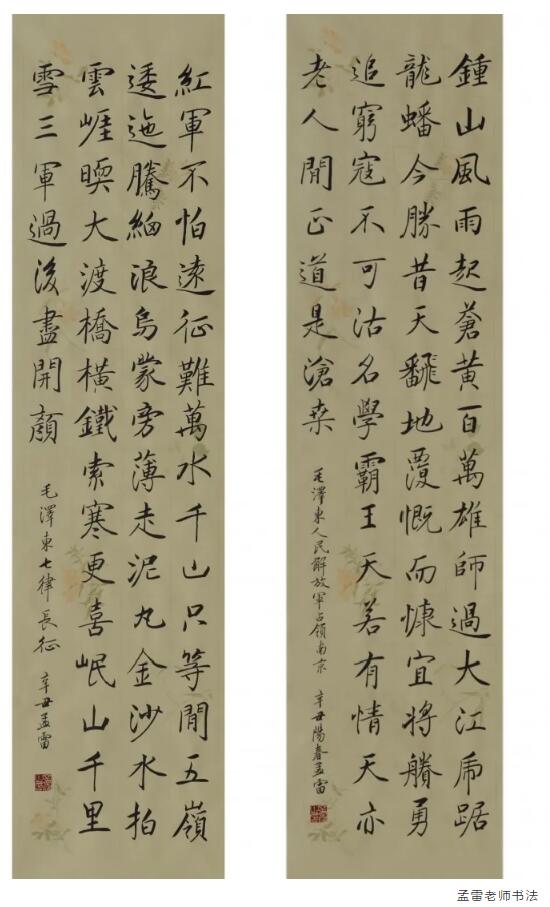 鍾山風雨起蒼黃百萬雄師過大江虎踞
龍蟠今勝昔天飜地覆慨而慷宜將賸勇
追窮寇不可沽名學霸王天若有情天亦
老人閒正道是滄桑
毛澤東人民解放軍占領南京 辛丑陽春孟雷
紅軍不怕遠征難萬水千山只等閒五嶺
逶迤騰細浪烏蒙旁薄走泥丸金沙水拍
雲崕暖大渡橋橫鐵索寒更喜岷山千里
雪三軍過後盡開顏
毛澤東七律長征 辛丑孟雷
孟雷老师书法